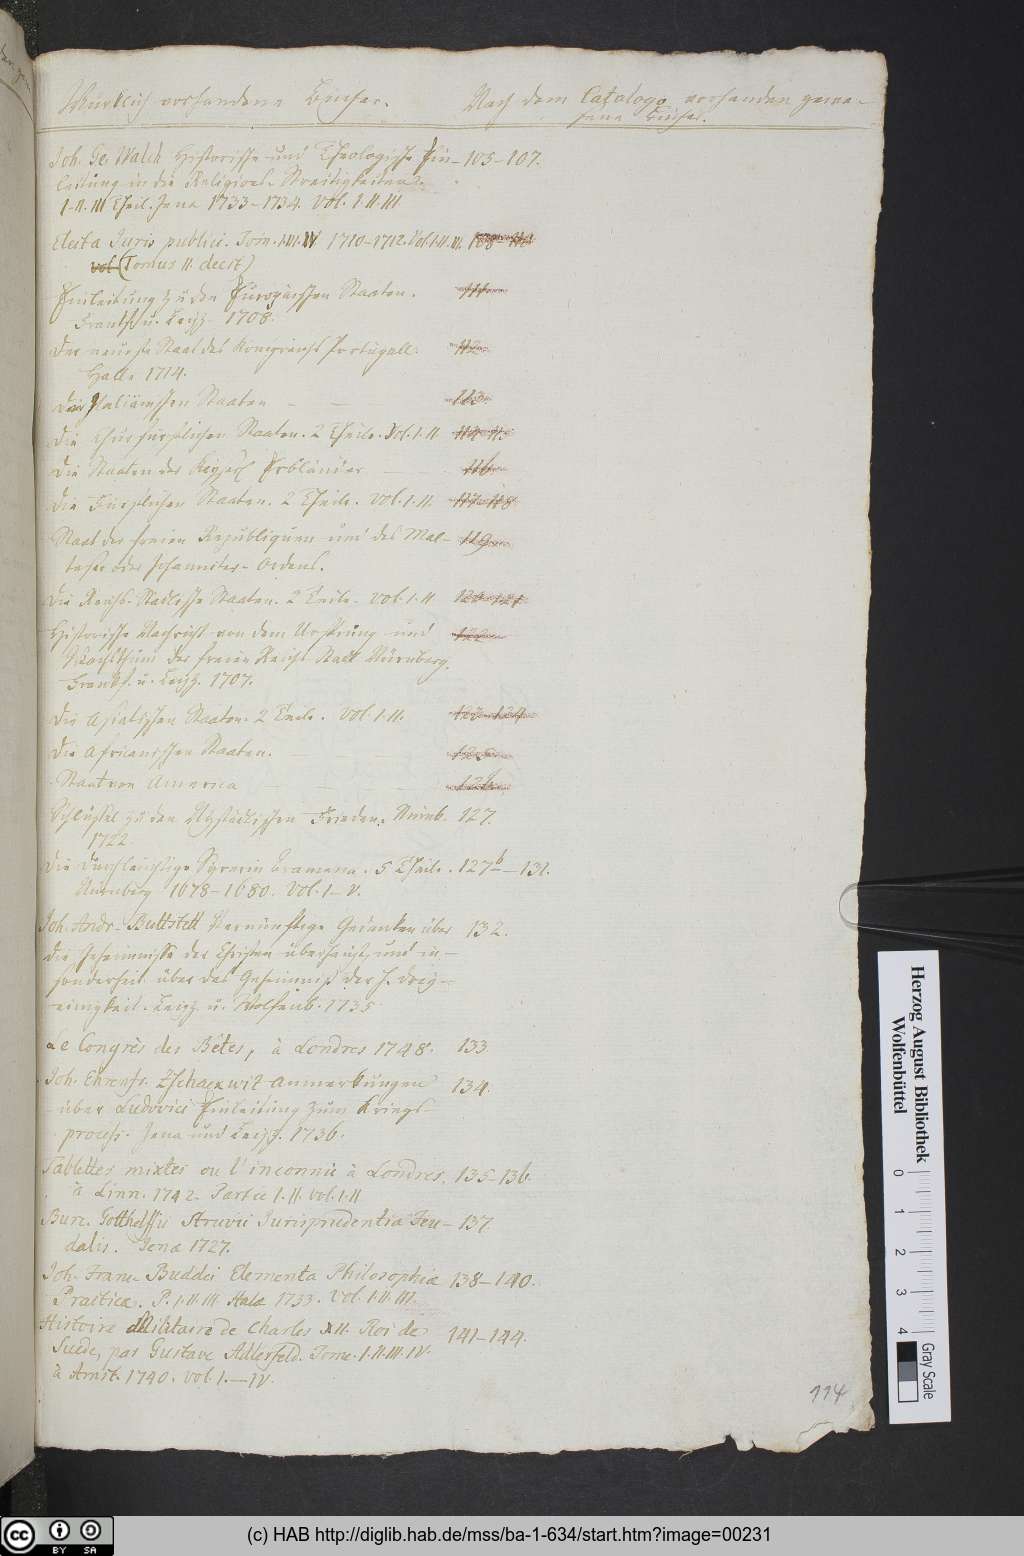 Würklich vorhandene Bücher. Nach dem Catalogo vorhanden gewe-
sene Bücher.
Joh. Ge. Walch Historische und Theologische Ein- 105-107.
leitung in die Religions-Streitigkeiten.
I-II. III Theil. Jena 1733-1734. Vol. I. II. III
Electa Juris publici. Tom. I. III. IV 1710-1712. Vol. I. II. III. 108-110
vol (Tomus II. deest)
Einleitung zu den Europäischen Staaten. 111
Franckf. u. Leipz. 1708.
Der neueste Staat des Königreichs Portugall. 112
Halle 1714.
Die Italiänischen Staaten 113.
Die Churfürstlichen Staaten. 2 Theile. Vol. I. II 114-115
Die Staaten der Kayserl. Erbländer 116
Die Fürstlichen Staaten. 2 Theile. Vol. I. II. 117-118
Staat der freien Republiquen und des Mal- 119
teser oder Johanniter-Ordens.
Die Reichs-Städtische Staaten. 2 Theile. Vol. I. II 120-121
Historische Nachricht von dem Ursprung und 122
Wachsthum der freien Reichs Stadt Nürnberg.
Franckf. u. Leipz. 1707.
Die Asiatischen Staaten. 2 Theile. Vol. I. II. 123-124
Die Africanischen Staaten. 125
Staat von America 126
Schlüssel zu den Nystädtischen Frieden. Nürnb. 127.
1722.
Die Durchleuchtige Syrerin Aramena. 5 Theile. 127b-131.
Nürnberg 1678-1680. Vol. I-V.
Joh. Andr. Buttstett Vernünftige Gedanken über 132.
die Geheimnisse der Christen überhaupt und in-
sonderheit über das Geheimniß der H. Drey-
einigkeit. Leipz. u. Wolfenb. 1735
Le Congrès des Bêtes, à Londres 1748. 133
Joh. Ehrenfr. Zschackwitz Anmerkungen 134.
über Ludovici Einleitung zum Kriegs-
process. Jena und Leipz. 1736.
Tablettes mixtes ou l'inconnu à Londres. 135-136.
à Linn. 1742. Partie I. II. vol. I. II
Burc. Gotthelffii Struvii Jurisprudentia Feu- 137.
dalis. Jenæ 1727.
Joh. Franc. Buddei Elementa Philosophiæ 138-140.
Practicæ. P. I. II. III. Halæ 1733. Vol. I. II. III.
Histoire Militaire de Charles XII. Roi de 141-144.
Suede, par Gustave Adlerfeld. Tome. I. II. III. IV.
à Amst. 1740. vol. I.-IV.
114
Herzog August Bibliothek
Wolfenbüttel
0 1 2 3 4
Gray Scale
cc BY SA
(c) HAB http://diglib.hab.de/mss/ba-1-634/start.htm?image=00231